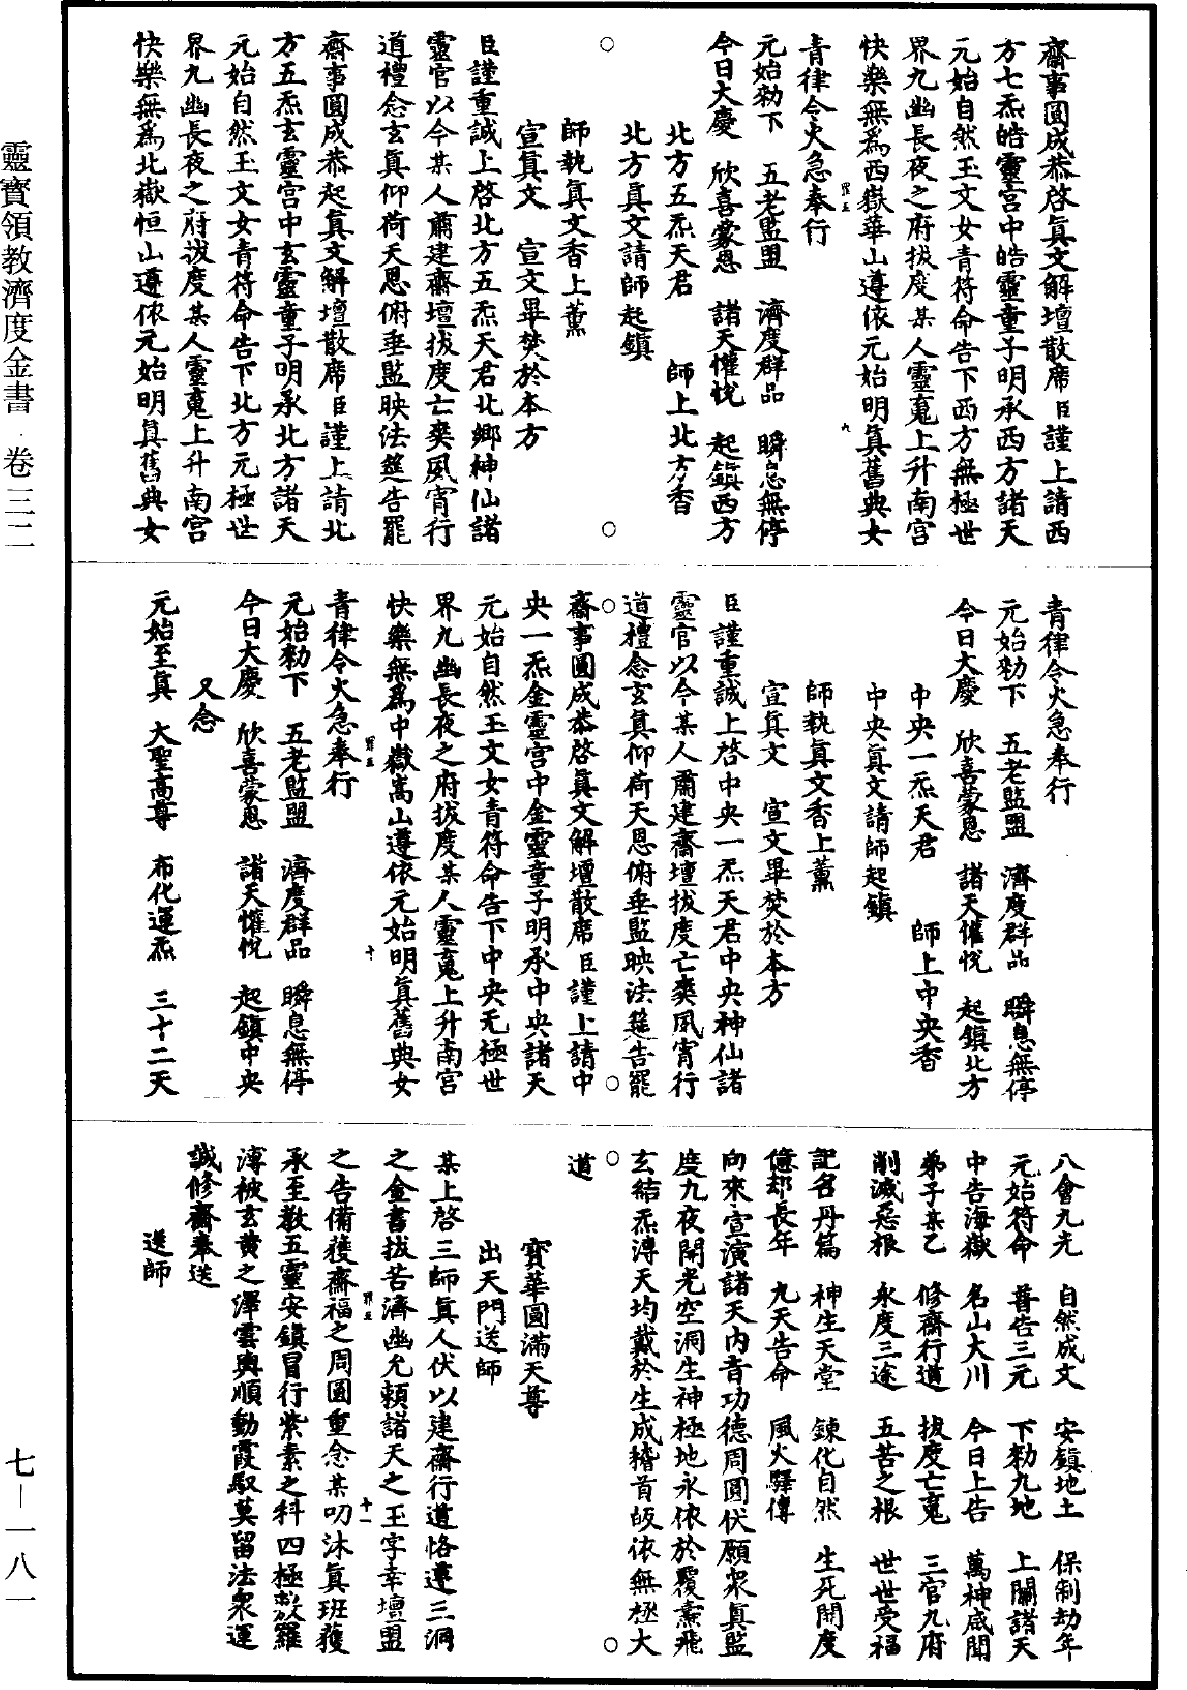 齋事圓成恭啓眞文解壇散席臣謹上請西
方七炁皓靈宮中皓靈童子明承西方諸天
元始自然玉文女青符命告下西方無極世
界九幽長夜之府拔度某人靈䰟上升南宮
快樂無爲西嶽華山遵依元始明眞舊典女
青律令火急奉行
元始勑下 五老監盟 濟度群品 瞬息無停
今日大慶 欣喜蒙恩 諸天懽悅 起鎮西方
北方五炁天君 師上北方香
北方眞文請師起鎮
師執眞文香上薰
宣眞文 宣文畢焚於本方
臣謹重誠上啓北方五炁天君北鄉神仙諸
靈官以今某人肅建齋壇拔度亡爽夙宵行
道禮念玄眞仰荷天恩俯垂監映法筵告罷
齋事圓成恭起眞文解壇散席臣謹上請北
方五炁玄靈宮中玄靈童子明承北方諸天
元始自然玉文女青符命告下北方元極世
界九幽長夜之府拔度某人靈䰟上升南宮
快樂無爲北嶽恒山遵依元始明眞舊典女
青律令火急奉行
元始勑下 五老監盟 濟度群品 瞬息無停
今日大慶 欣喜蒙恩 諸天懽悅 起鎮北方
中央一炁天君 師上中央香
中央眞文請師起鎮
師執眞文香上薰
宣眞文 宣文畢焚於本方
臣謹重誠上啓中央一炁天君中央神仙諸
靈官以今某人肅建齋壇拔度亡爽夙宵行
道禮念玄眞仰荷天恩俯垂監映法筵告罷
齋事圓成恭啓眞文解壇散席臣謹上請中
央一炁金靈宮中金靈童子明承中央諸天
元始自然玉文女青符命告下中央无極世
界九幽長夜之府拔度某人靈䰟上升南宮
快樂無爲中嶽嵩山遵依元始明眞舊典女
青律令火急奉行
元始勑下 五老監盟 濟度群品 瞬息無停
今日大慶 欣喜蒙恩 諸天懽悅 起鎮中央
又念
元始至眞 大聖高尊 布化運炁 三十二天
八會九光 自然成文 安鎮地土 保制劫年
元始符命 普告三元 下勑九地 上關諸天
中告海嶽 名山大川 今日上告 萬神咸聞
弟子某乙 修齋行道 拔度亡䰟 三官九府
削滅惡根 永度三途 五苦之根 世世受福
記名丹篇 神生天堂 鍊化自然 生死開度
億刧長年 九天告命 風火驛傳
向來宣演諸天內音功德周圓伏願衆眞監
度九夜開光空洞生神極地永依於覆燾飛
玄結炁溥天均戴於生成稽首皈依無極大
道
寶華圓滿天尊
出天門送師
某上啓三師眞人伏以建齋行道恪遵三洞
之金書拔苦濟幽允賴諸天之玉字幸壇盟
之告備獲齋福之周圓重念某叨沐眞班獲
承至教五靈安鎮冒行紫素之科四極敷羅
溥被玄黄之澤雲輿順動霞馭莫留法衆運
誠修齋奉送
送師
靈寶領教濟度金書 卷三二
七—一八一